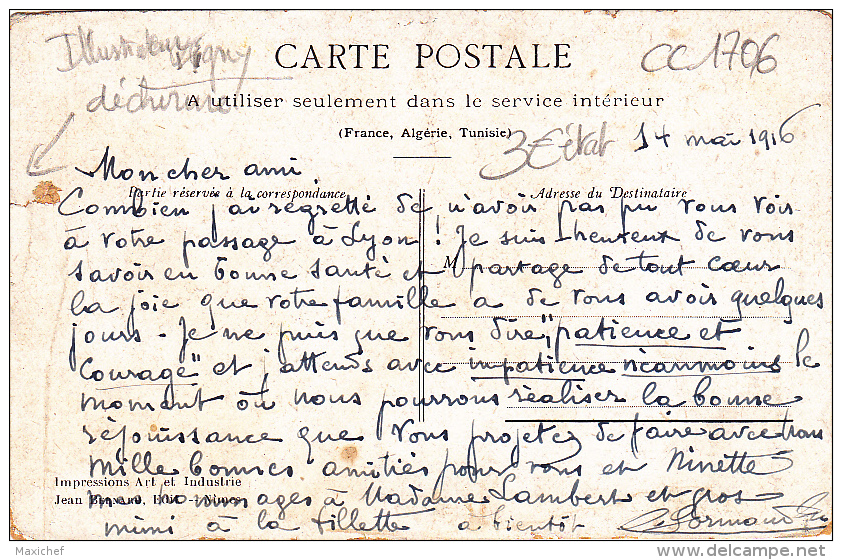 Illustrateur
CARTE POSTALE
CC1706
déchirure
A utiliser seulement dans le service intérieur
(France, Algérie, Tunisie)
3€ état
14 mai 1916
Mon cher ami,
Partie réservée à la correspondance
Adresse du Destinataire
Combien j'ai regretté de n'avoir pas pu vous voir
à votre passage à Lyon ! Je suis heureux de vous
savoir en bonne santé et M partage de tout cœur
la joie que votre famille a de vous avoir quelques
jours - Je ne puis que vous dire "patience et
courage" et j'attends avec impatience néanmoins le
moment où nous pourrons réaliser la bonne
réjouissance que vous projetez de faire avec nous
Mille bonnes amitiés pour vous et Ninette
Impressions Art et Industrie
mes hommages à Madame Lambert et gros
Jean Bernard, Edit. - Nimes
mimi à la fillette a bientôt
Maxichef
delcampe.net